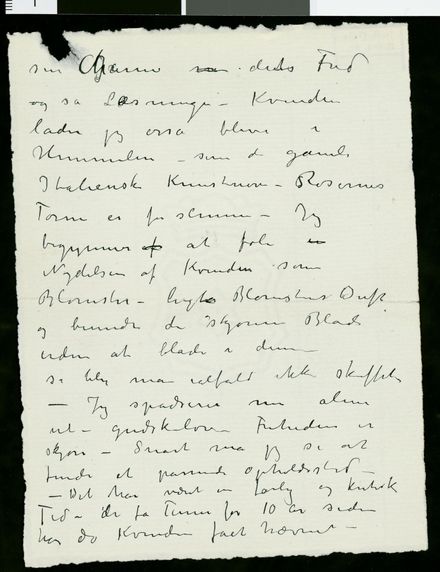 sin
og så Læsninge – Kvinden
lader jeg også blive i
Himmelen – som de gamle
Italienske Kunstnere – Rosernes
Torne er for slemme – Jeg
begynner at føle
Nydelsen af Kvinden som
Blomster – lugte Blomstens Duft
og beundre de skjønne Blade
uden at blade i dem
så blir man ialfald ikke skuffet
– Jeg spadserer nu alene
ut – gudskelov – Friheden er
skjøn – Snart må jeg se at
finde et passende opholdssted –
– Det har været en farlig og kritisk
Tid – for 10 år siden
har da Kvinden fået hævnet –